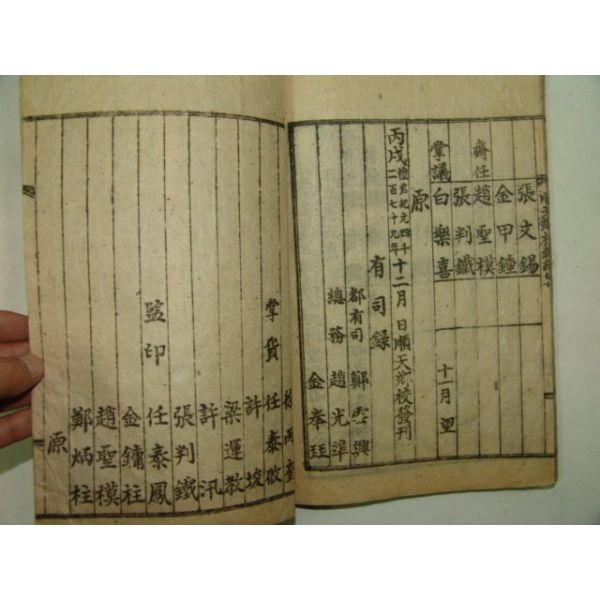 張文錫
金甲鍾
齊任 趙聖模
張判鐵
掌議 白樂喜 十一月望
原
丙戌 檀君紀元四千二百七十九年 十二月 日順天鄕校發刊
有司錄
都有司 鄭雲興
總務 趙光
金奉
丙
掌貨 任泰
許
梁運教
許汛
張判鐵
監印 任泰鳳
金鏞柱
趙聖模
鄭炳柱
原